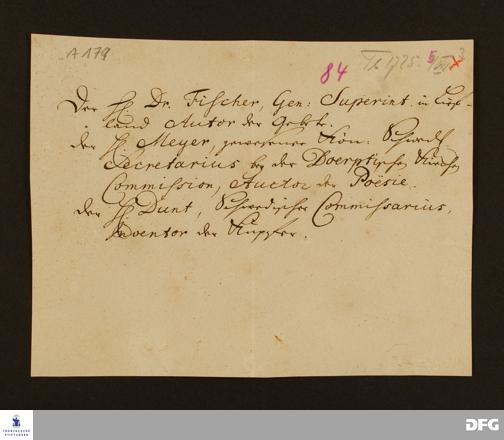 A 179
84
Der H. Dr. Fischer, Gen: Superint. in Lief-
land Autor der Gebete.
der H. Meyer, gewesener Kön: Schwed.
Secretarius bey der Doerptischen Kirchen
Commission, Auctor der Poësie.
der H. Dunt, Schwedischer Commissarius,
Inventor der Kupffer.
FRANCKESCHE
STIFTUNGEN
DFG